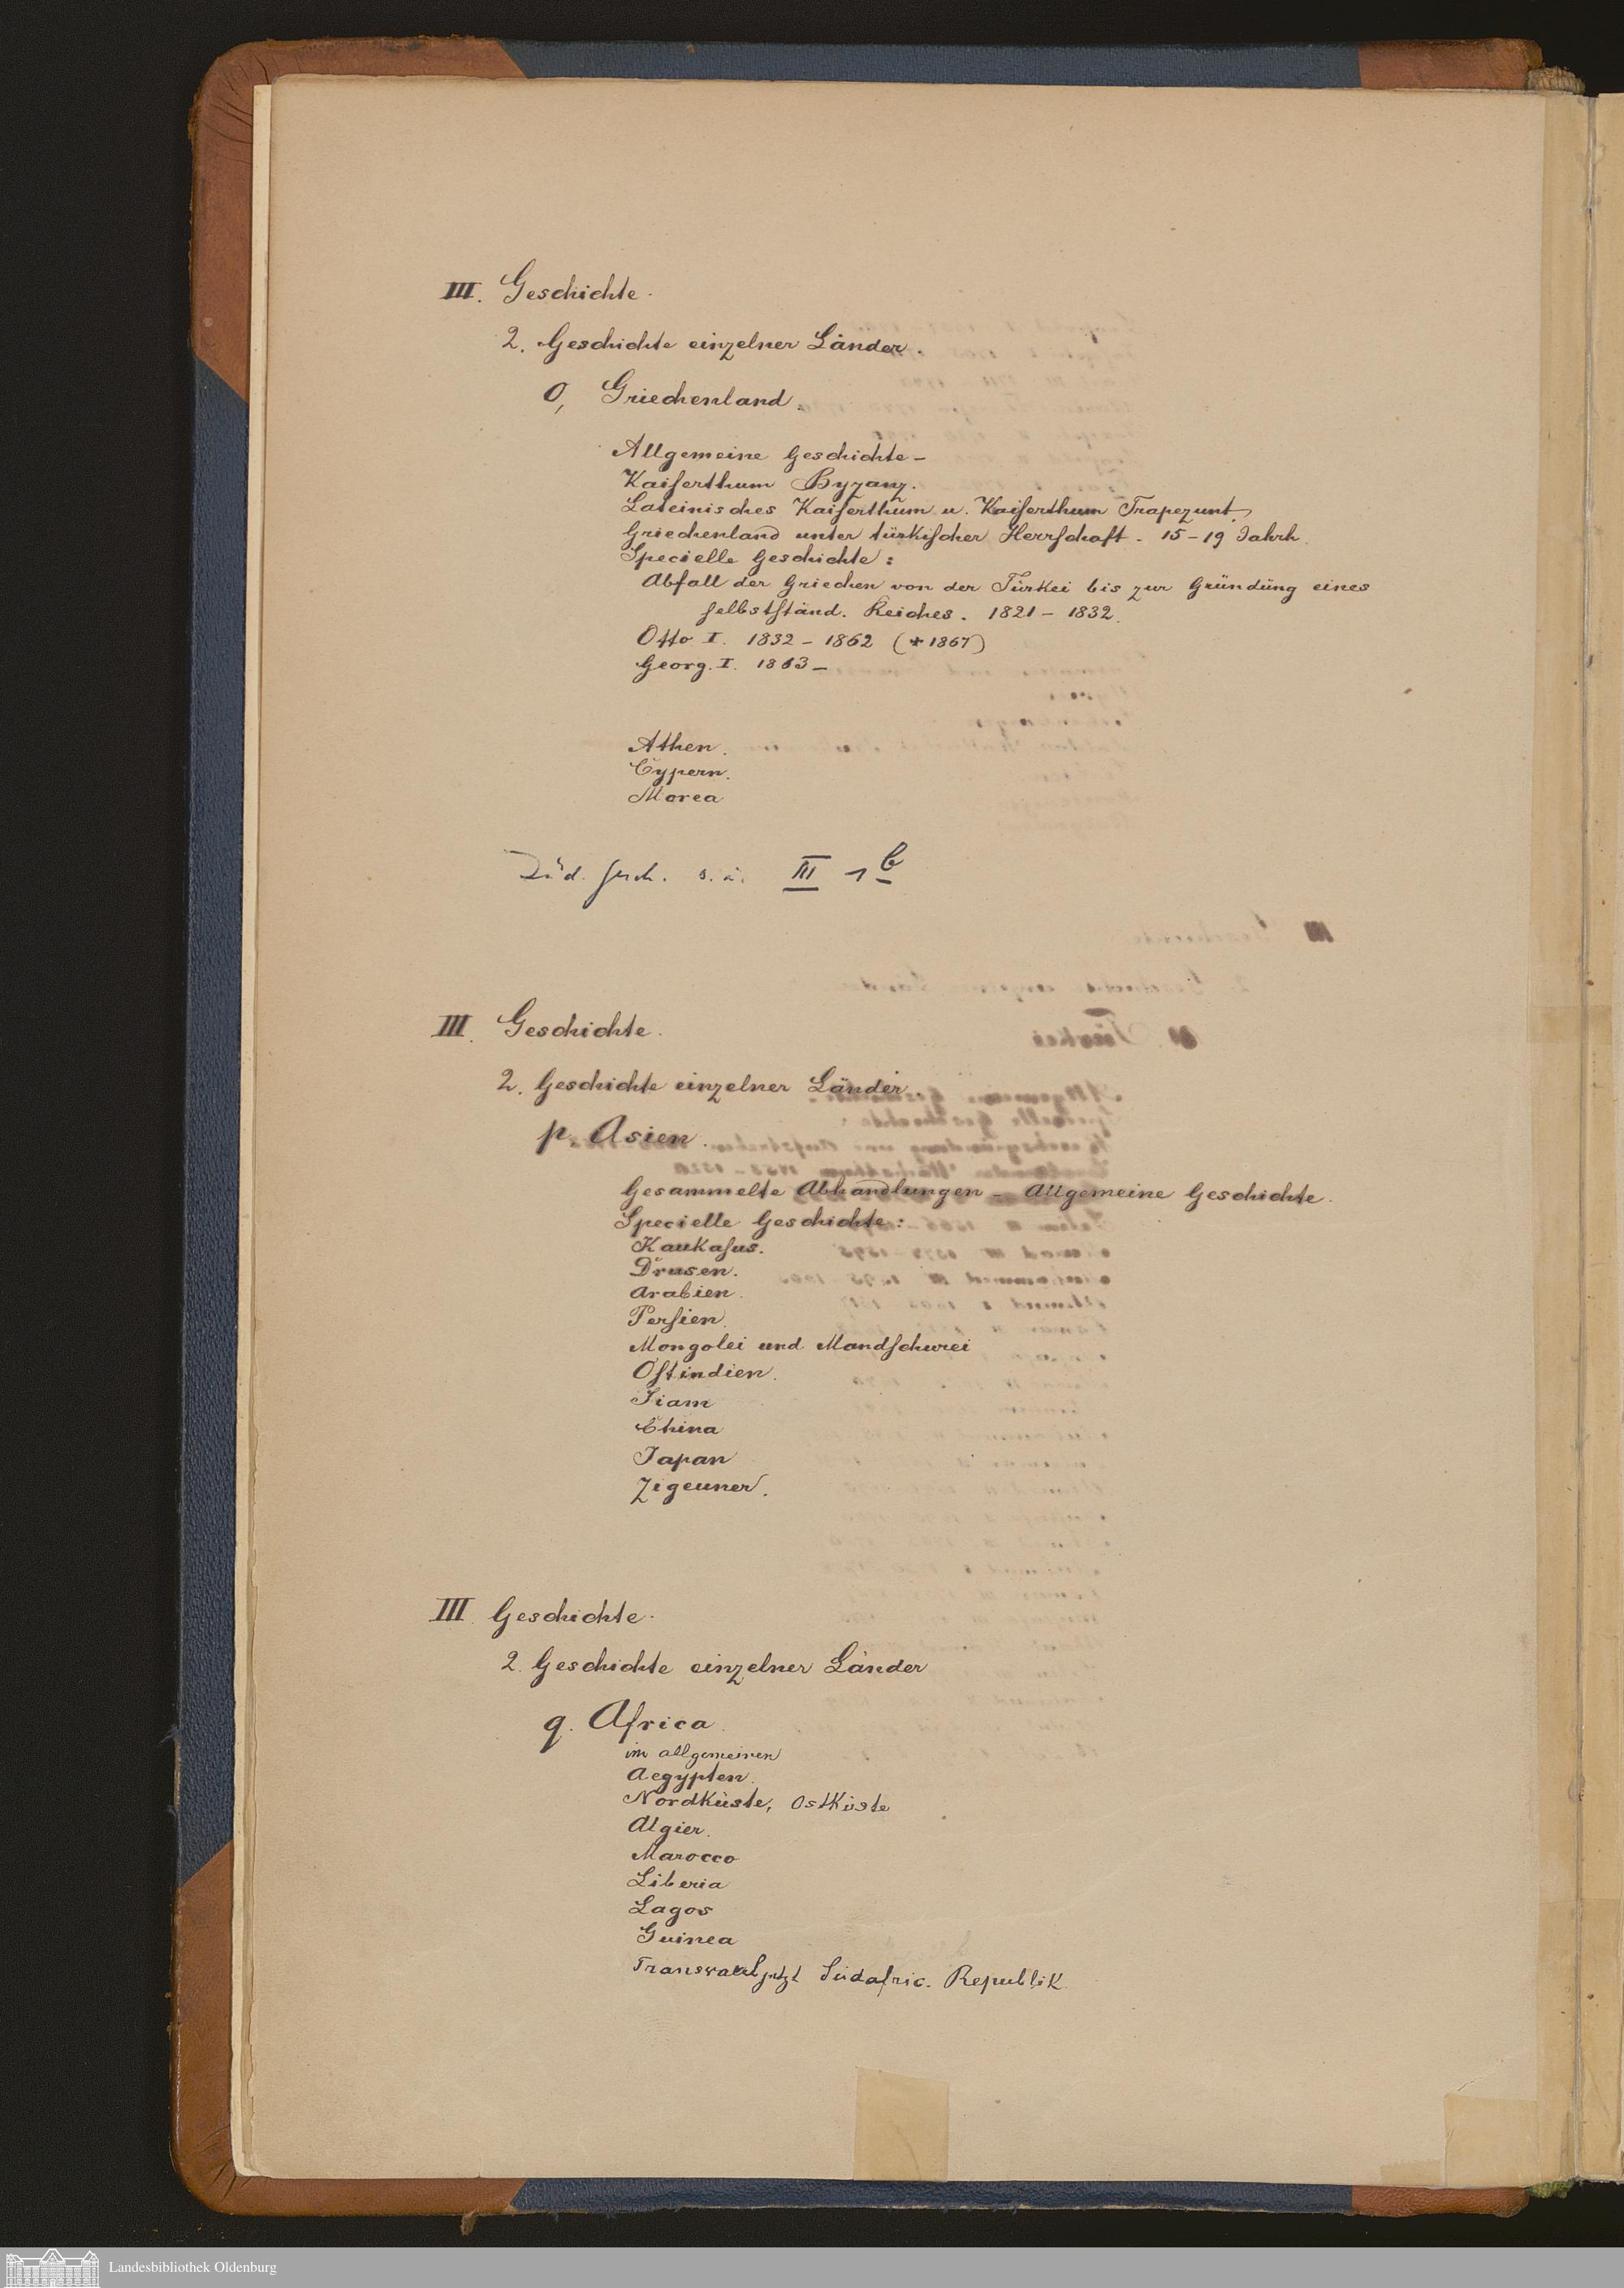 III. Geschichte.
2. Geschichte einzelner Länder.
O, Griechenland.
Allgemeine Geschichte -
Kaiserthum Byzanz.
Lateinisches Kaiserthum u. Kaiserthum Trapezunt.
Griechenland unter türkischer Herrschaft. 15-19 Jahrh.
Specielle Geschichte:
Abfall der Griechen von der Türkei bis zur Gründung eines
selbstständ. Reiches. 1821-1832.
Otto I. 1832-1862 (+ 1867)
Georg. I. 1863-
Athen.
Cypern.
Morea
Jüd. Gesch. s. a. III 1 b
III. Geschichte.
2. Geschichte einzelner Länder.
p. Asien.
Gesammelte Abhandlungen - Allgemeine Geschichte.
Specielle Geschichte:
Kaukasus.
Drusen.
Arabien.
Persien.
Mongolei und Mandschurei
Ostindien.
Siam
China
Japan
Zigeuner.
III. Geschichte.
2. Geschichte einzelner Länder
q. Africa.
im allgemeinen
Aegypten.
Nordküste, Ostküste
Algier.
Marocco
Liberia
Lagos
Guinea
Transvaal jetzt Südafric. Republik.
Landesbibliothek Oldenburg